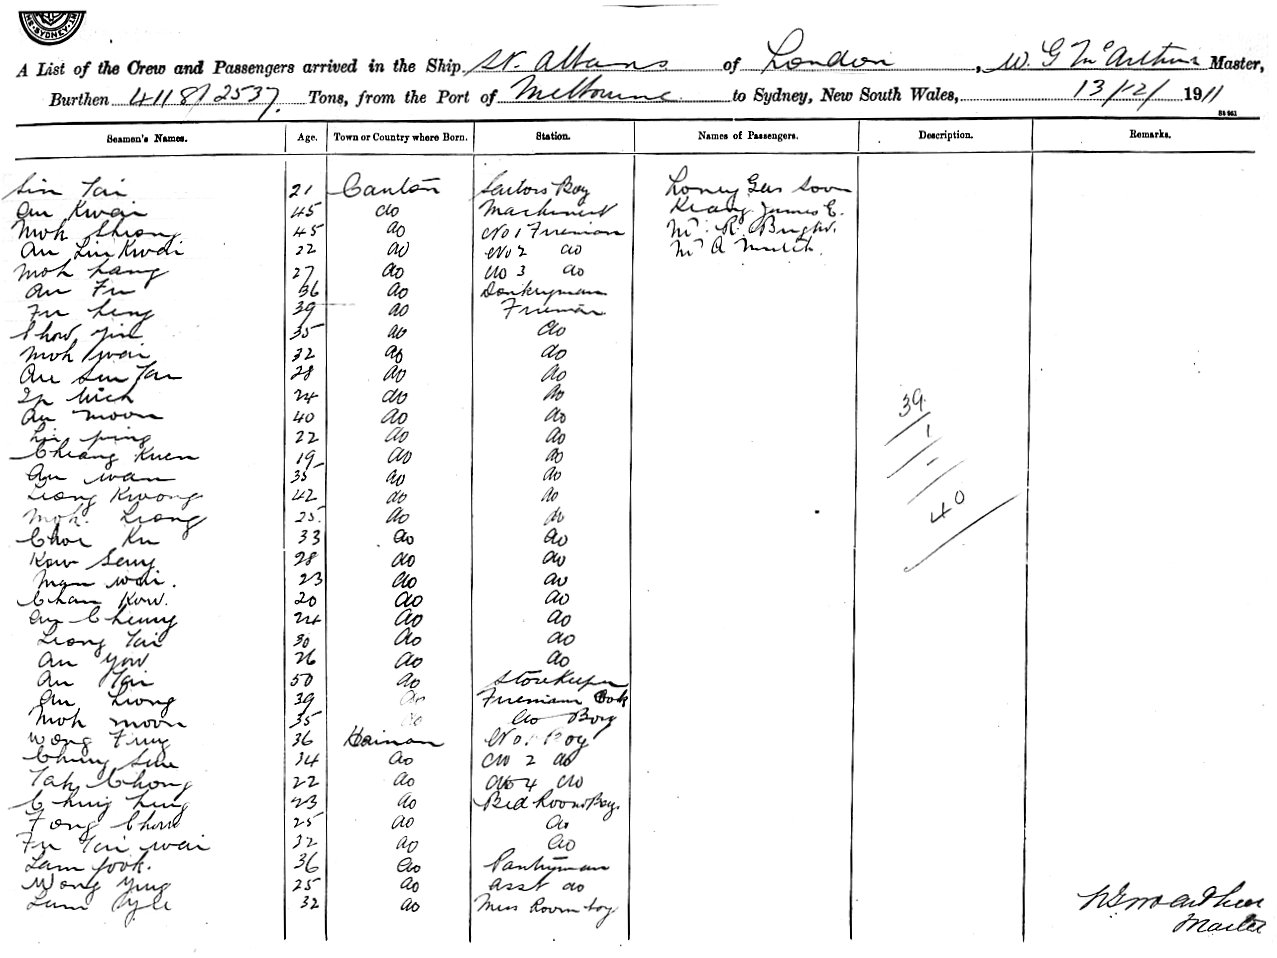 SYDNEY
A List of the Crew and Passengers arrived in the Ship St. Albans of London, W. G. McArthur Master,
Burthen 4118/2537. Tons, from the Port of Melbourne to Sydney, New South Wales, 13/12/1911
Seamen's Names. Age. Town or Country where Born. Station. Names of Passengers. Description. Remarks.
Sin Tai 21 Canton Sailors Boy Loney Gee Soon
Au Kwai 45 do Machinist Keang James E.
Mok Cheong 45 do No 1 Fireman Mr. R.
Au Lin Kwai 22 do No 2 do Mr A
Mok hang 27 do No 3 do
Au Fu 36 do Donkeyman
Fu heng 39 do Fireman
Chow Jin 35 do do
Mok wai 32 do do
Au Sun Tan 28 do do
Ip 24 do do
Au Moon 40 do do
ping 22 do do
Cheang Kuen 19 do do
Au wan 35 do do
Leong Kwong 42 do do
Mok Leong 25 do do
Choi Ku 33 do do
Kow Seng 28 do do
Man Wai. 23 do do
Chan Kow. 20 do do
Au Cheung 24 do do
Leong Tai 30 do do
Au Yow 26 do do
Au Tai 50 do Storekeeper
Au Leong 39 do Firemans Cook
Mok Moon 35 do do Boy
Wong Fung 36 Hainan No 1 Boy
Chung 24 do No 2 do
Tak Chong 22 do No 4 do
Ching hing 23 do Bed Room Boy.
Fong Chow 25 do do
Fu Tai Wai 22 do do
Lam Fook. 36 do Pantryman
Wong Ying 25 do Asst do
Lum 32 do Mess Room boy
39
1
-
40
W G McArthur
Master